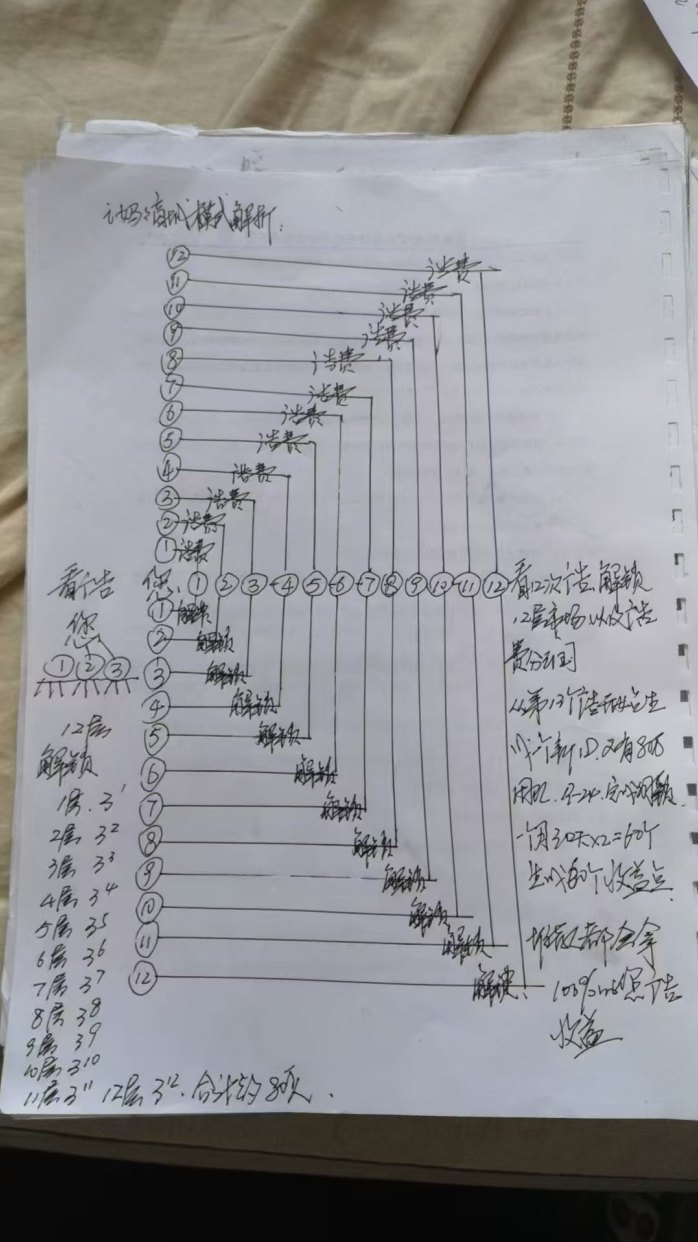 商城模式解析:
⑫ 广告费
⑪ 广告费
⑩ 广告费
⑨ 广告费
⑧ 广告费
⑦ 广告费
⑥ 广告费
⑤ 广告费
④ 广告费
③ 广告费
② 广告费
① 广告费
看广告
您
① ② ③
12层
解锁
1层 3¹
2层 3²
3层 3³
4层 3⁴
5层 3⁵
6层 3⁶
7层 3⁷
8层 3⁸
9层 3⁹
10层 3¹⁰
11层 3¹¹ 12层 3¹². 合计约80万.
您 ① ② ③ ④ ⑤ ⑥ ⑦ ⑧ ⑨ ⑩ ⑪ ⑫
① 解锁
② 解锁
③ 解锁
④ 解锁
⑤ 解锁
⑥ 解锁
⑦ 解锁
⑧ 解锁
⑨ 解锁
⑩ 解锁
⑪ 解锁
⑫ 解锁
看12次广告解锁
12层市场以及广告
费分红
从第13个广告开始生
成一个新ID.又有80万
用户.
一个月30天x2=60个
生成60个收益点
全拿
100% 广告
收益